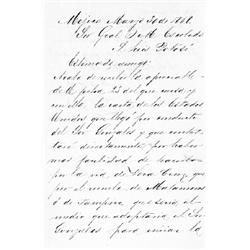 Mejico Marzo 30 de 1861.
Sor Gral D. M. Escobedo
S. Luis Potosí
Estimado amigo:
Acabo de recibir la apreciable
de U. fecha 25 del que cursa y
con ella la carta de los Estados
Unidos que llegó por conducto
del Sor Gonzales y que contesta
directamente, por haber
mas facilidad de hacerlo
por la via de Vera Cruz que
por el rumbo de Matamoros
ó de Tampico que seria el
medio que adoptaria el Sor
Gonzales para enviar la